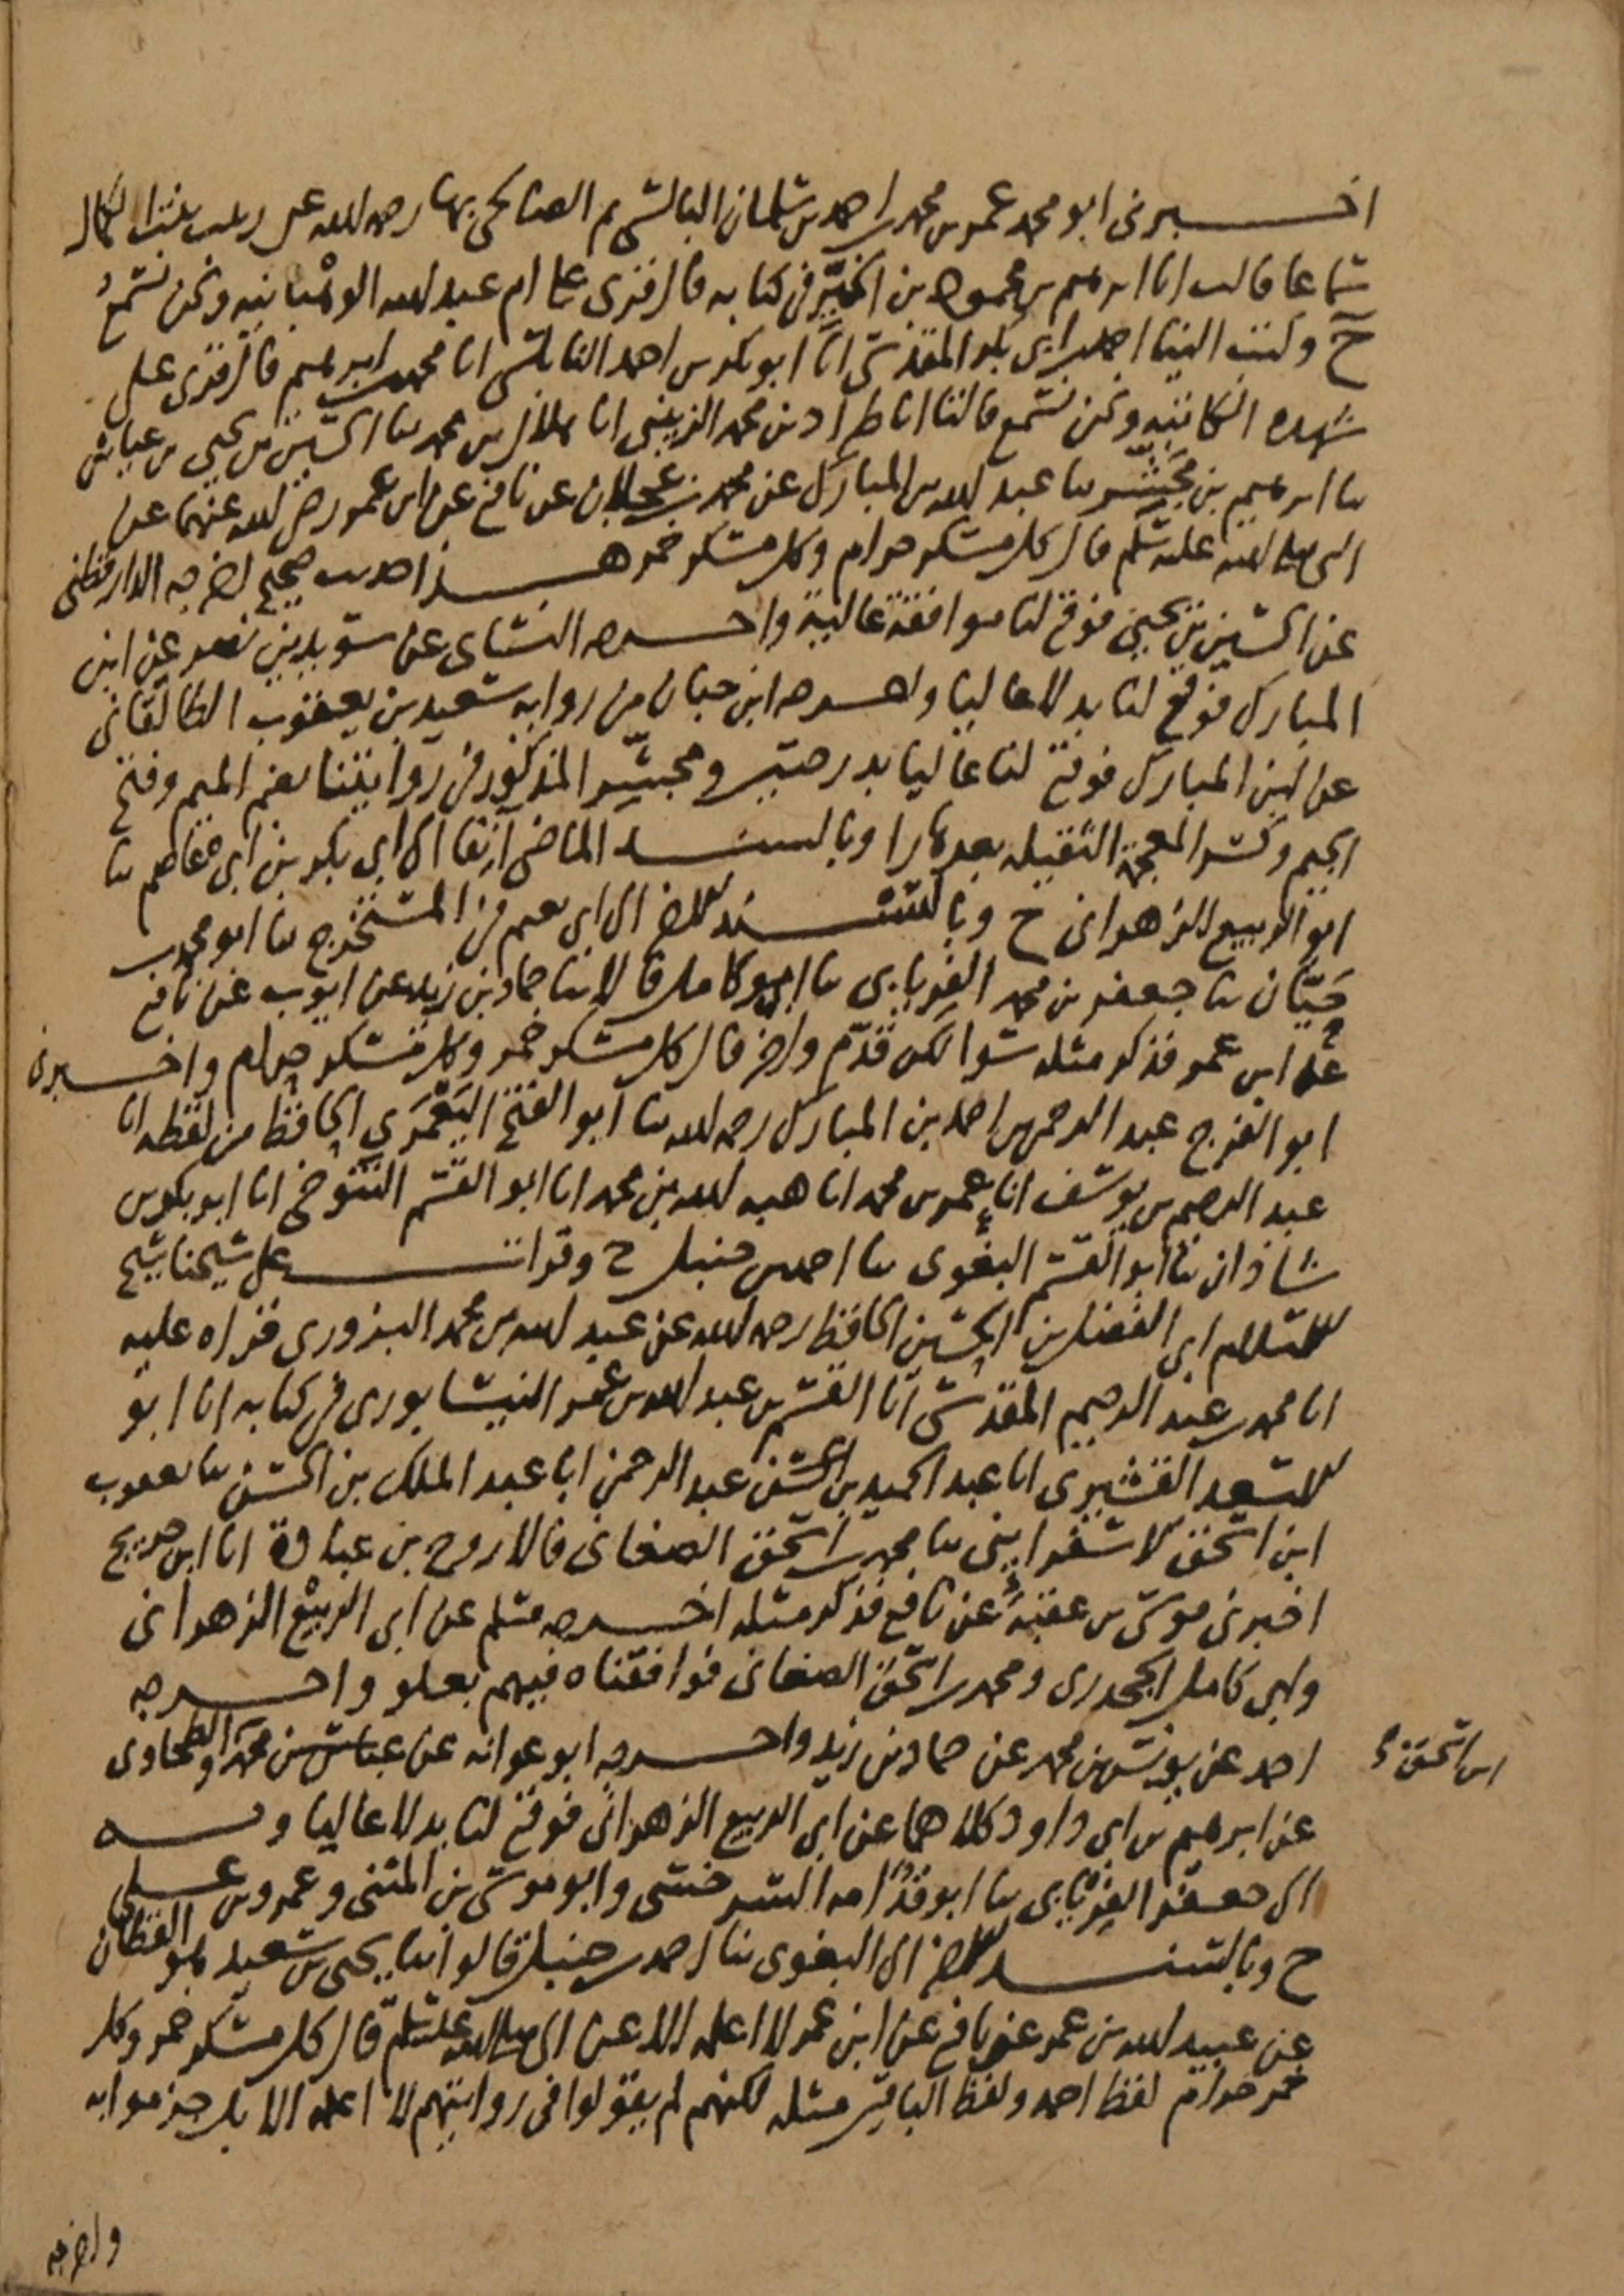 اخبرنى ابو محمد عمر بن محمد بن احمد بن سلمان البالسى ثم الصالحى بها رحمه الله عن زينب بنت الكمال
سماعا قالت انا ابرهيم بن محمود بن الخيّر فى كتابه قال قرى على ام عبد الله الوهبانيه ونحن نسمع
ح وكتب الينا احمد بن ابى بكر المقدسى انا ابو بكر بن احمد النابلسى انا محمد بن ابرهيم قال قرى على
شهده الكاتبيه ونحن نسمع قالتا انا طراد بن محمد الزينبى انا هلال بن محمد ثنا الحسين بن يحيى بن عياش
ثنا ابرهيم بن مجشّر ثنا عبد الله بن المبارك عن محمد بن عجلان عن نافع عن ابن عمر رضى الله عنهما عن
النبى صلى الله عليه وسلم قال كل مسكر حرام وكل مسكر خمر هذا حديث صحيح اخرجه الدارقطنى
عن الحسين بن يحيى فوقع لنا موافقة عالية واخرجه النساى عن سويد بن نصر عن ابن
المبارك فوقع لنا بدلا عاليا واخرجه ابن حبان من روايه سعيد بن يعقوب الطالقانى
عن ابن المبارك فوقع لنا عاليا بدرجتين ومجشّر المذكور فى روايتنا بضم الميم وفتح
الجيم وكسر المعجمة الثقيله بعدها را وبالسند الماضى آنفا الى ابى بكر بن ابى عاصم ثنا
ابو الربيع الزهرانى ح وبالسند الاخر الى ابى نعيم فى المستخرج ثنا ابو محمد بن
حيّان ثنا جعفر بن محمد الفريابى ثنا ابو كامل قالا ثنا حماد بن زيد عن ايوب عن نافع
عن ابن عمر فذكر مثله سوا لكن قدّم واخر قال كل مسكر خمر وكل مسكر حرام واخبرنى
ابو الفرج عبد الرحمن بن احمد بن المبارك رحمه الله ثنا ابو الفتح اليَعْمَرى الحافظ من لفظه انا
عبد الرحيم بن يوسف انا عمر بن محمد انا هبه الله بن محمد انا ابو القسم التنوخى انا ابو بكر بن
شاذان ثنا ابو القسم البغوى ثنا احمد بن حنبل ح وقرات على شيخنا شيخ
الاسلام ابى الفضل بن الحسين الحافظ رحمه الله عن عبد الله بن محمد البزورى قراه عليه
انا محمد بن عبد الرحيم المقدسى انا القسم بن عبد الله بن عمر النيسابورى فى كتابه انا ابو
الاسعد القشيرى انا عبد الحميد بن عبد الرحمن انا عبد الملك بن الحسن ثنا يعقوب
ابن اسحق الاسفراينى ثنا محمد بن اسحق الصغانى قالا روح بن عبادة انا ابن جريج
اخبرنى موسى بن عقبة عن نافع فذكر مثله اخرجه مسلم عن ابى الربيع الزهرانى
وابى كامل الجحدرى ومحمد بن اسحق الصغانى فوافقناه فيهم بعلو واخرجه
احمد عن يونس بن محمد عن حماد بن زيد واخرجه ابو عوانه عن عباس بن محمد والطحاوى
ابن اسحق
عن ابرهيم بن ابى داود كلاهما عن ابى الربيع الزهرانى فوقع لنا بدلا عاليا وبه
الى جعفر الفريابى ثنا ابو قدامه السرخسى وابو موسى بن المثنى وعمرو بن على
ح وبالسند الاخر الى البغوى ثنا احمد بن حنبل قالوا ثنا يحيى بن سعيد هو القطان
عن عبيد الله بن عمر عن نافع عن ابن عمر لا اعلمه الا عن النبى صلى الله عليه وسلم قال كل مسكر خمر وكل
خمر حرام لفظ احمد ولفظ الباقين مثله لكنهم لم يقولوا فى روايتهم لا اعلمه الا بل جزموا به
واخرجه